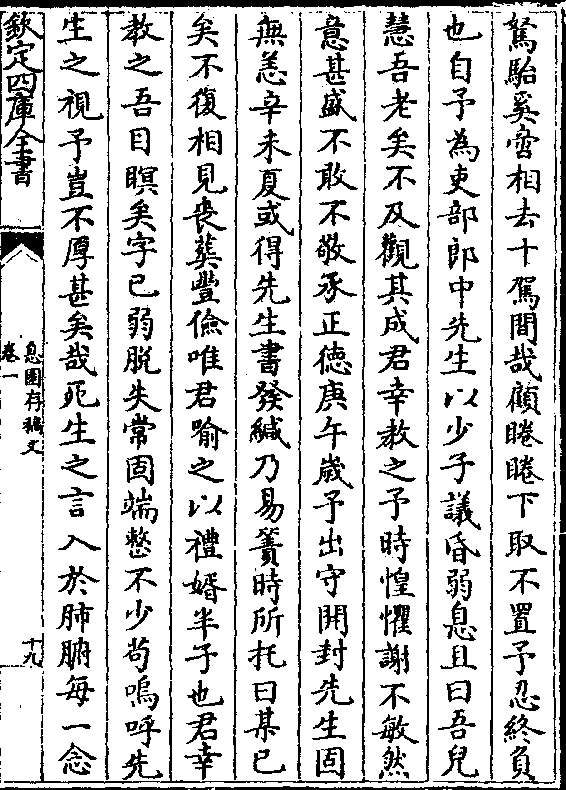 駑駘奚啻相去十駕間哉顧睠睠下取不置予忍終負
也自予為吏部郎中先生以少子議昏弱息且曰吾兒
慧吾老矣不及觀其成君幸教之予時惶懼謝不敏然
意甚盛不敢不敬承正徳庚午嵗予出守開封先生固
無恙辛未夏或得先生書發緘乃易簀時所托曰某已
矣不復相見喪葬豐儉唯君喻之以禮婿半子也君幸
教之吾目瞑矣字已弱脱失常固端慤不少茍嗚呼先
生之視予豈不厚甚矣哉死生之言入於肺腑每一念
欽定四庫全書
息園存稿文
卷一
十九